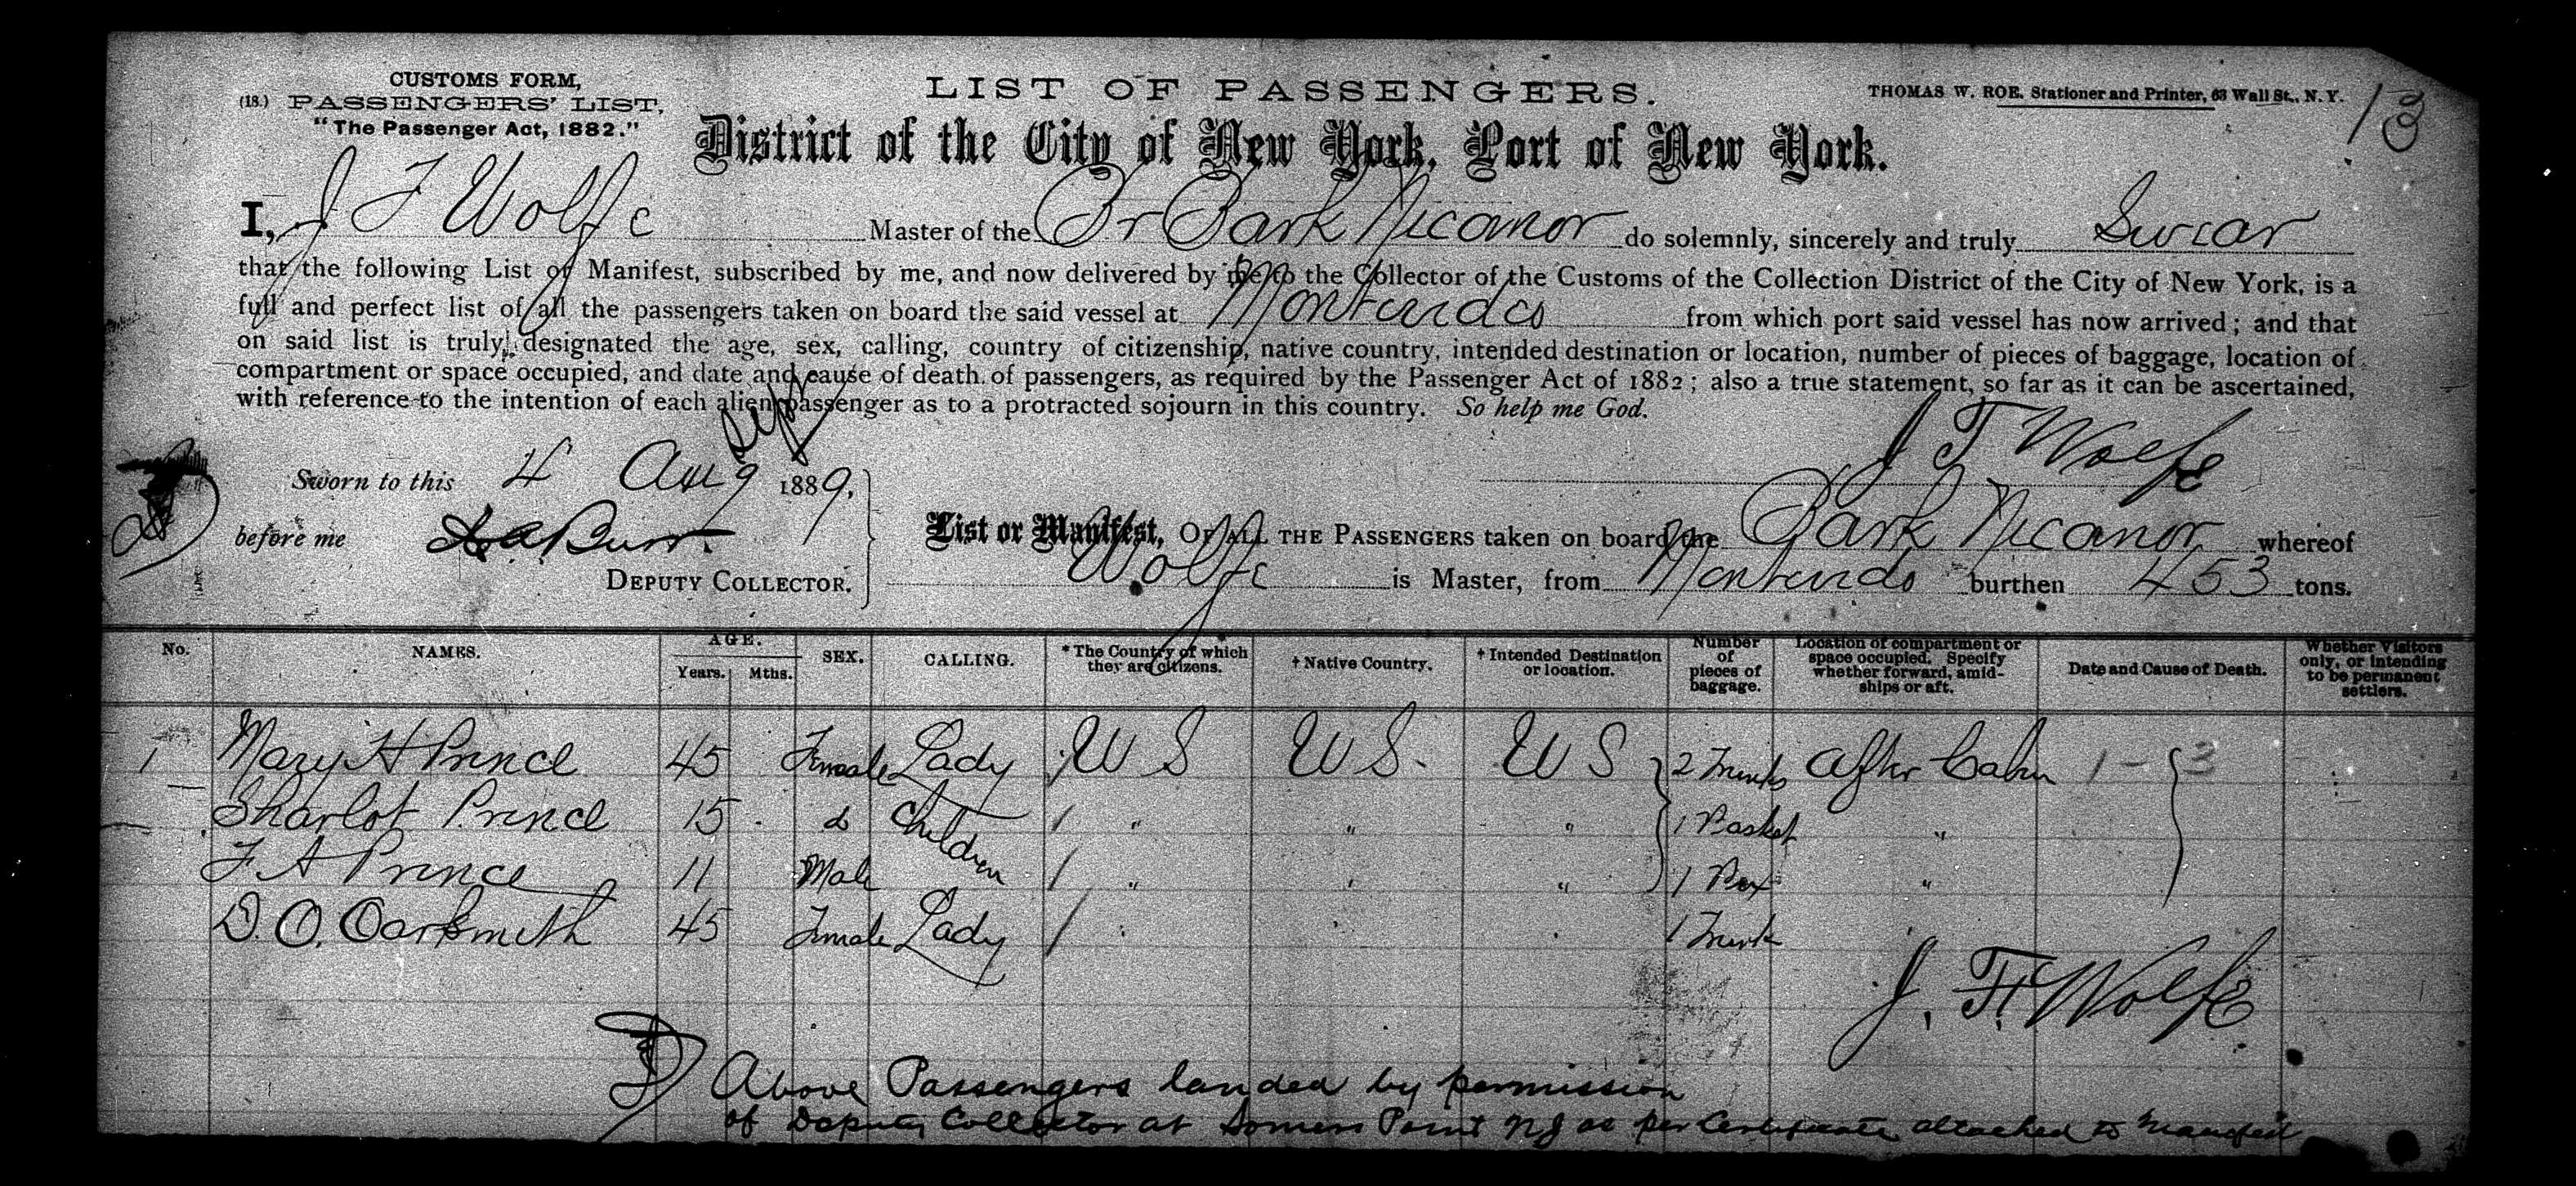 CUSTOMS FORM,
(18.) PASSENGERS' LIST,
"The Passenger Act, 1882."
LIST OF PASSENGERS.
THOMAS W. ROE. Stationer and Printer, 63 Wall St., N. Y.
13
District of the City of New York, Port of New York.
I, J F Wolfe Master of the Br Bark Nicanor do solemnly, sincerely and truly Swear
that the following List or Manifest, subscribed by me, and now delivered by me to the Collector of the Customs of the Collection District of the City of New York, is a
full and perfect list of all the passengers taken on board the said vessel at Montevideo from which port said vessel has now arrived; and that
on said list is truly designated the age, sex, calling, country of citizenship, native country, intended destination or location, number of pieces of baggage, location of
compartment or space occupied, and date and cause of death of passengers, as required by the Passenger Act of 1882; also a true statement, so far as it can be ascertained,
with reference to the intention of each alien passenger as to a protracted sojourn in this country. So help me God.
Sept
J F Wolfe
Sworn to this 4 Aug 1889.
before me
DEPUTY COLLECTOR.
List or Manifest, OF ALL THE PASSENGERS taken on board the Bark Nicanor whereof
Wolfe is Master, from Montevido burthen 453 tons.
No. NAMES. AGE. Years. Mths. SEX. CALLING. * The Country of which they are citizens. † Native Country. † Intended Destination or location. Number of pieces of baggage. Location of compartment or space occupied. Specify whether forward, amidships or aft. Date and Cause of Death. Whether Visitors only, or intending to be permanent settlers.
1 Mary H Prince 45 Female Lady U S U S. U S 2 Trunks After Cabin 1 - 3
Sharlot Prince 15 do Children " " " 1 Basket "
F A Prince 11 Male " " " 1 Box "
D. O. Oarksmith 45 Female Lady " " " 1 Trunk
J. F. Wolfe
Above Passengers landed by permission
of Deputy Collector at Somers Point NJ as per Certificate attached to Manifest